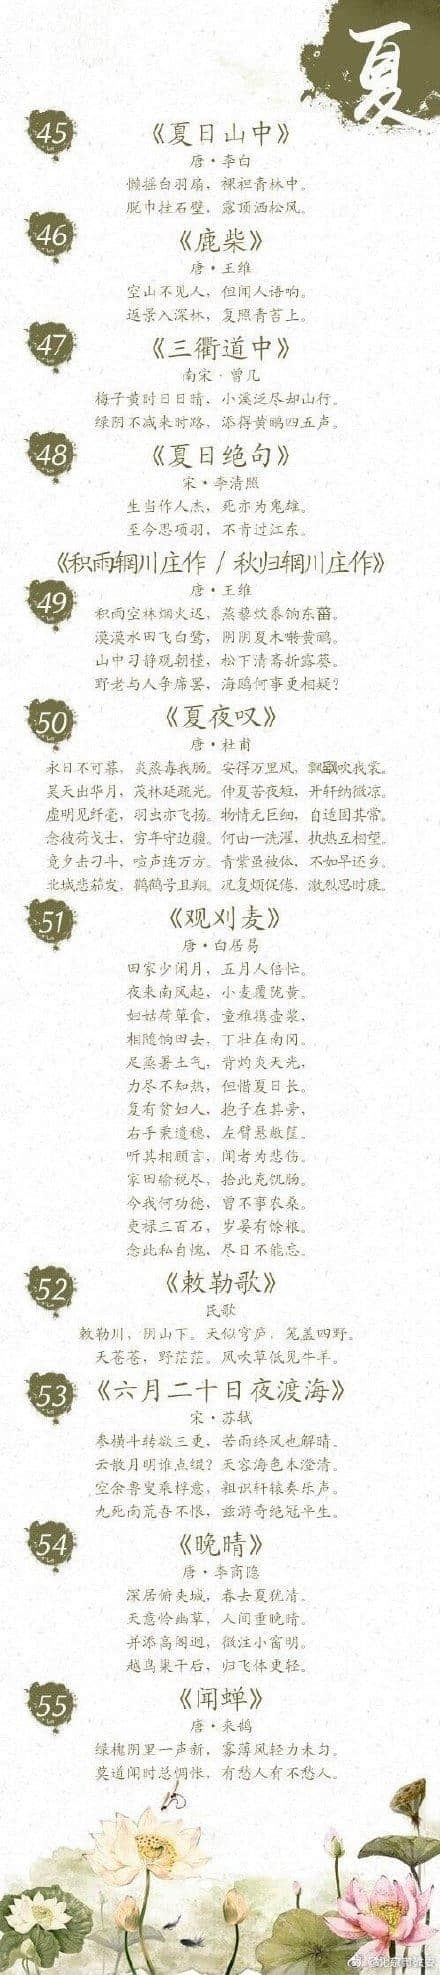 夏
45
《夏日山中》
唐·李白
懒摇白羽扇，裸袒青林中。
脱巾挂石壁，露顶洒松风。
46
《鹿柴》
唐·王维
空山不见人，但闻人语响。
返景入深林，复照青苔上。
47
《三衢道中》
南宋·曾几
梅子黄时日日晴，小溪泛尽却山行。
绿阴不减来时路，添得黄鹂四五声。
48
《夏日绝句》
宋·李清照
生当作人杰，死亦为鬼雄。
至今思项羽，不肯过江东。
《积雨辋川庄作 / 秋归辋川庄作》
49
唐·王维
积雨空林烟火迟，蒸藜炊黍饷东菑。
漠漠水田飞白鹭，阴阴夏木啭黄鹂。
山中习静观朝槿，松下清斋折露葵。
野老与人争席罢，海鸥何事更相疑？
50
《夏夜叹》
唐·杜甫
永日不可暮，炎蒸毒我肠。安得万里风，飘飖吹我裳。
昊天出华月，茂林延疏光。仲夏苦夜短，开轩纳微凉。
虚明见纤毫，羽虫亦飞扬。物情无巨细，自适固其常。
念彼荷戈士，穷年守边疆。何由一洗濯，执热互相望。
竟夕击刁斗，喧声连万方。青紫虽被体，不如早还乡。
北城悲笳发，鹳鹤号且翔。况复烦促倦，激烈思时康。
51
《观刈麦》
唐·白居易
田家少闲月，五月人倍忙。
夜来南风起，小麦覆陇黄。
妇姑荷箪食，童稚携壶浆，
相随饷田去，丁壮在南冈。
足蒸暑土气，背灼炎天光，
力尽不知热，但惜夏日长。
复有贫妇人，抱子在其旁，
右手秉遗穗，左臂悬敝筐。
听其相顾言，闻者为悲伤。
家田输税尽，拾此充饥肠。
今我何功德，曾不事农桑。
吏禄三百石，岁晏有馀粮。
念此私自愧，尽日不能忘。
52
《敕勒歌》
民歌
敕勒川，阴山下。天似穹庐，笼盖四野。
天苍苍，野茫茫。风吹草低见牛羊。
53
《六月二十日夜渡海》
宋·苏轼
参横斗转欲三更，苦雨终风也解晴。
云散月明谁点缀？天容海色本澄清。
空余鲁叟乘桴意，粗识轩辕奏乐声。
九死南荒吾不恨，兹游奇绝冠平生。
54
《晚晴》
唐·李商隐
深居俯夹城，春去夏犹清。
天意怜幽草，人间重晚晴。
并添高阁迥，微注小窗明。
越鸟巢干后，归飞体更轻。
55
《闻蝉》
唐·来鹄
绿槐阴里一声新，雾薄风轻力未匀。
莫道闻时总惆怅，有愁人有不愁人。